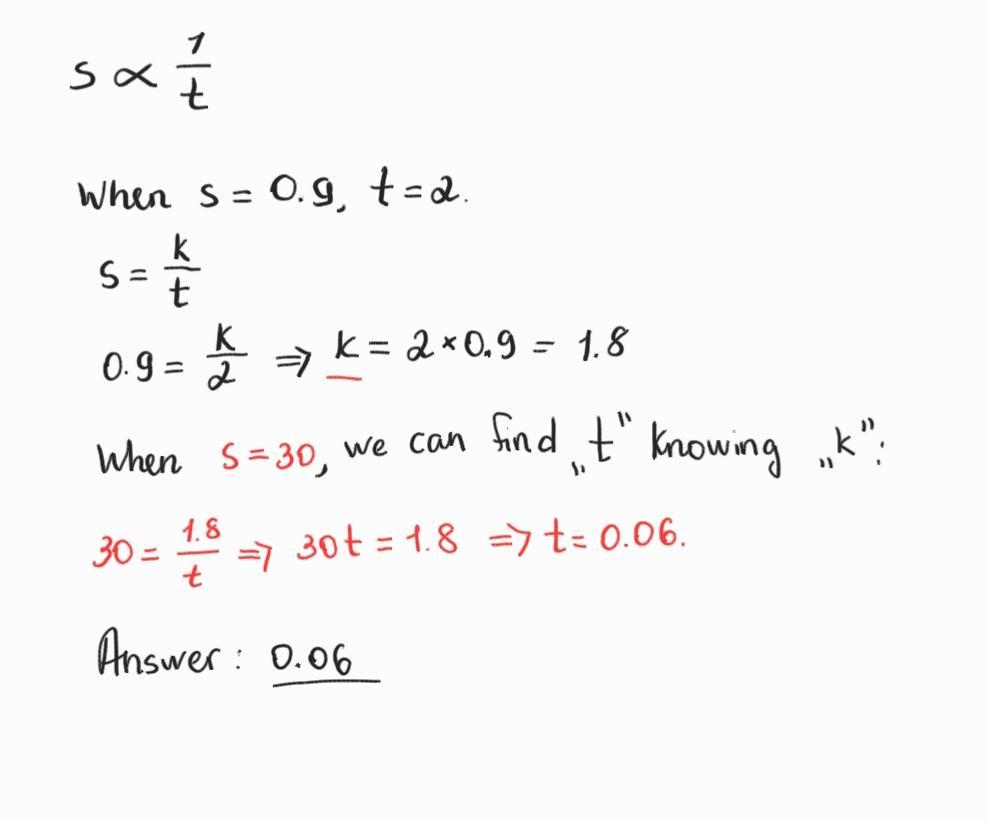 s ∝ 1/t
When s = 0.9, t = 2.
s = k/t
0.9 = k/2 ⇒ k = 2 × 0.9 = 1.8
When s = 30, we can find „t” knowing „k”:
30 = 1.8/t ⇒ 30t = 1.8 ⇒ t = 0.06.
Answer: 0.06